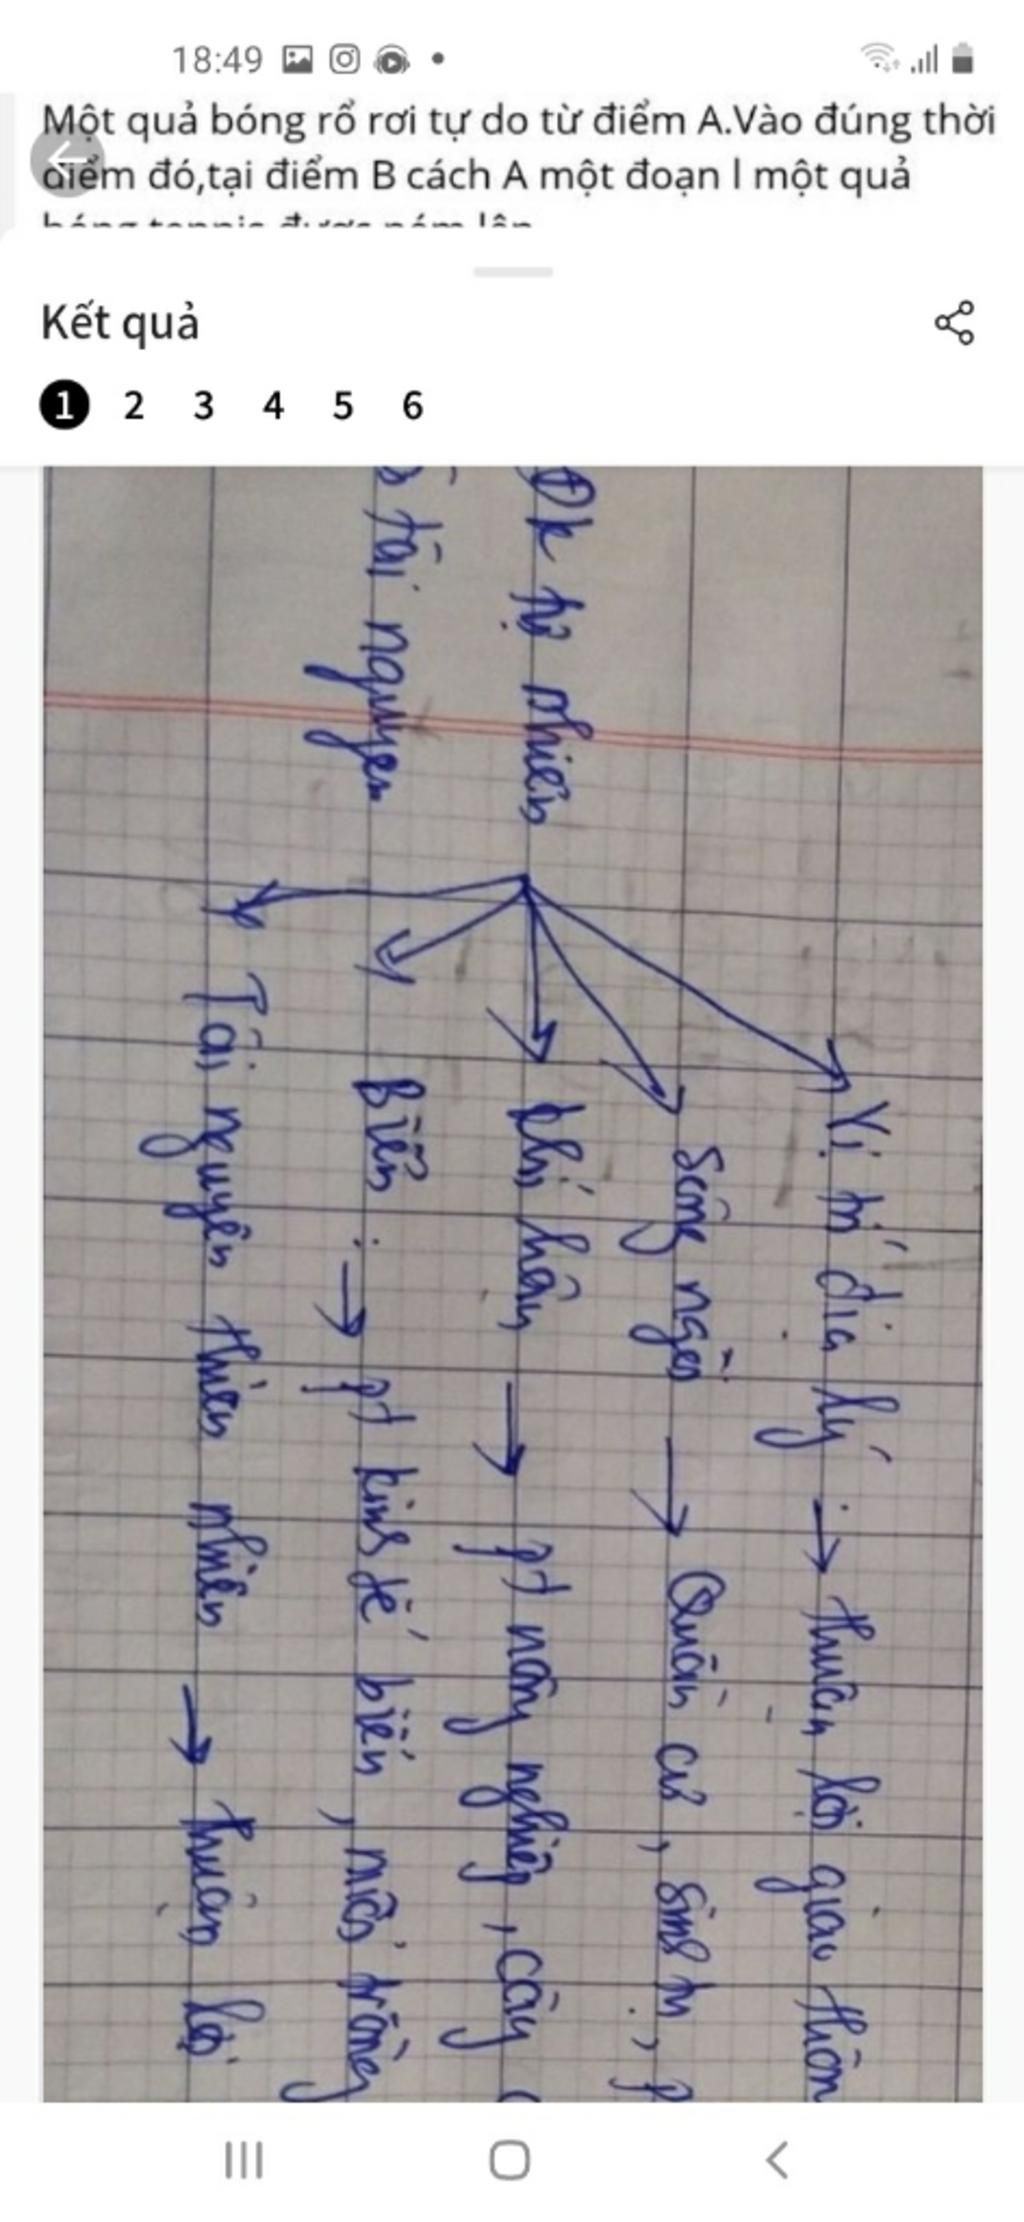 18:49
Một quả bóng rổ rơi tự do từ điểm A.Vào đúng thời
điểm đó,tại điểm B cách A một đoạn l một quả
bóng tennis được ném lên
Kết quả
1 2 3 4 5 6
Vị trí địa lý : → thuận lợi giao thôn
Sông ngòi → Quần cư, sinh
Đk tự nhiên
khí hậu → pt nông nghiệp, cây
tài nguyên
Biển : → pt kinh tế biển, trồng
Tài nguyên thiên nhiên → thuận lợi